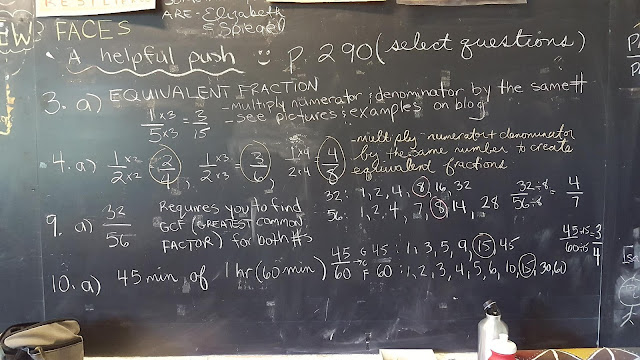 ARE-Elizabeth
& Spiegel
FACES
A helpful push p. 290 (select questions)
3. a) EQUIVALENT FRACTION
-multiply numerator & denominator by the same #
1 x3 / 5 x3 = 3/15
-see pictures & examples on blog
4. a) 1 x2 / 2 x2 = 2/4, 1 x3 / 2 x3 = 3/6, 1 x4 / 2 x4 = 4/8
-multiply numerator & denominator
by the same number to create
equivalent fractions
9. a) 32/56
Requires you to find
GCF (GREATEST COMMON
FACTOR) for both #s
32: 1, 2, 4, 8, 16, 32
56: 1, 2, 4, 7, 8, 14, 28
32 ÷8 / 56 ÷8 = 4/7
10. a) 45 min of 1 hr (60 min)
45/60
GCF
45: 1, 3, 5, 9, 15, 45
60: 1, 2, 3, 4, 5, 6, 10, 15, 30, 60
45 ÷15 / 60 ÷15 = 3/4